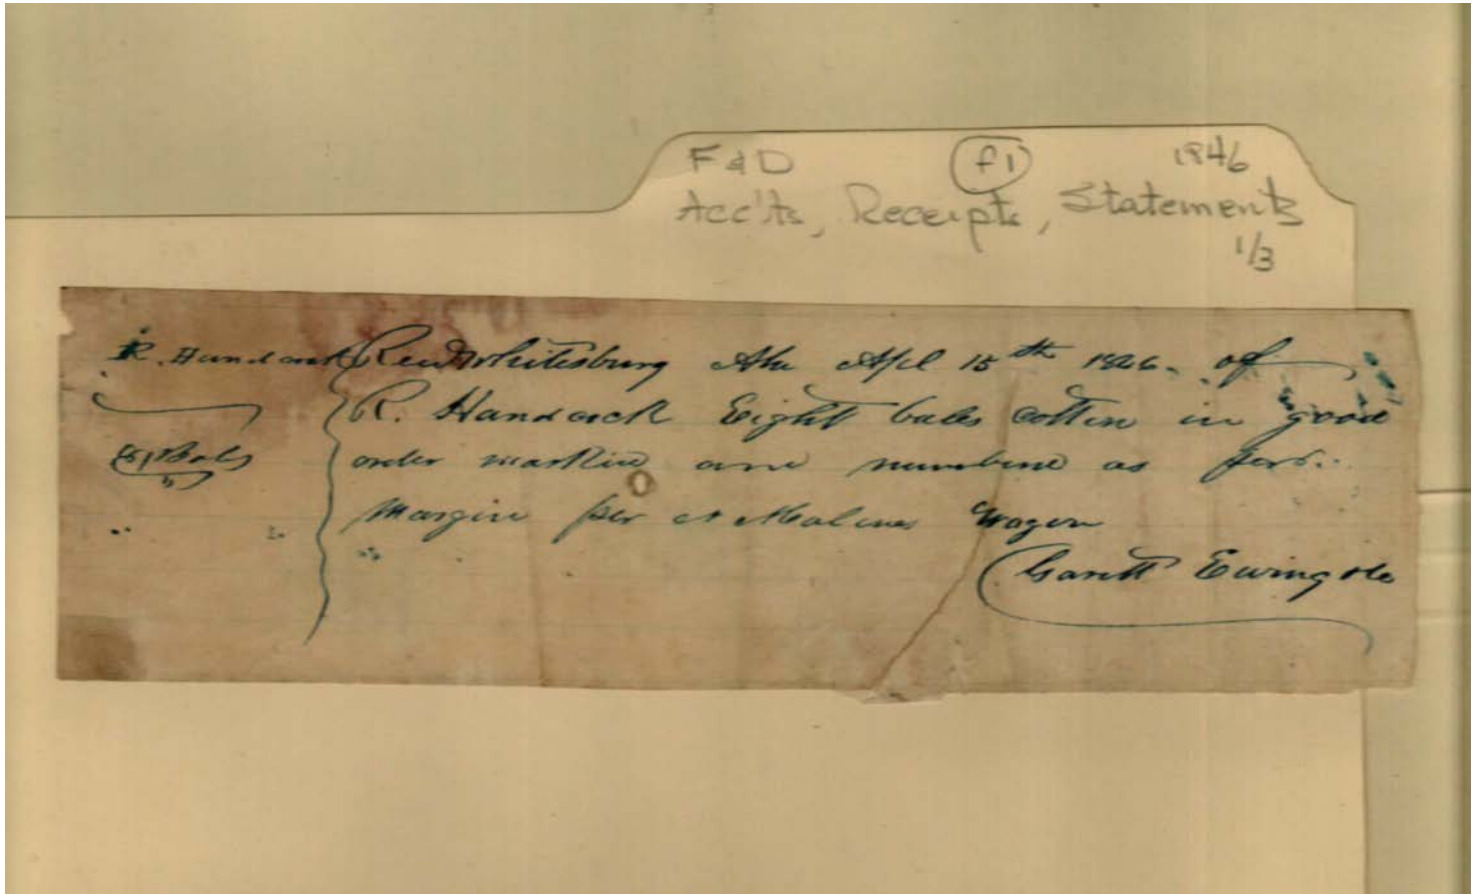 F & D (f1) 1846
Acc'ts, Receipts, Statements
1/3
R. Handcock Recd Whitesburg Ala Apl 15th 1846. of
R. Handcock Eight bales cotton in good
(8) Bals order marked and numbered as per
Margin per Wagon
Garett Ewing &Co